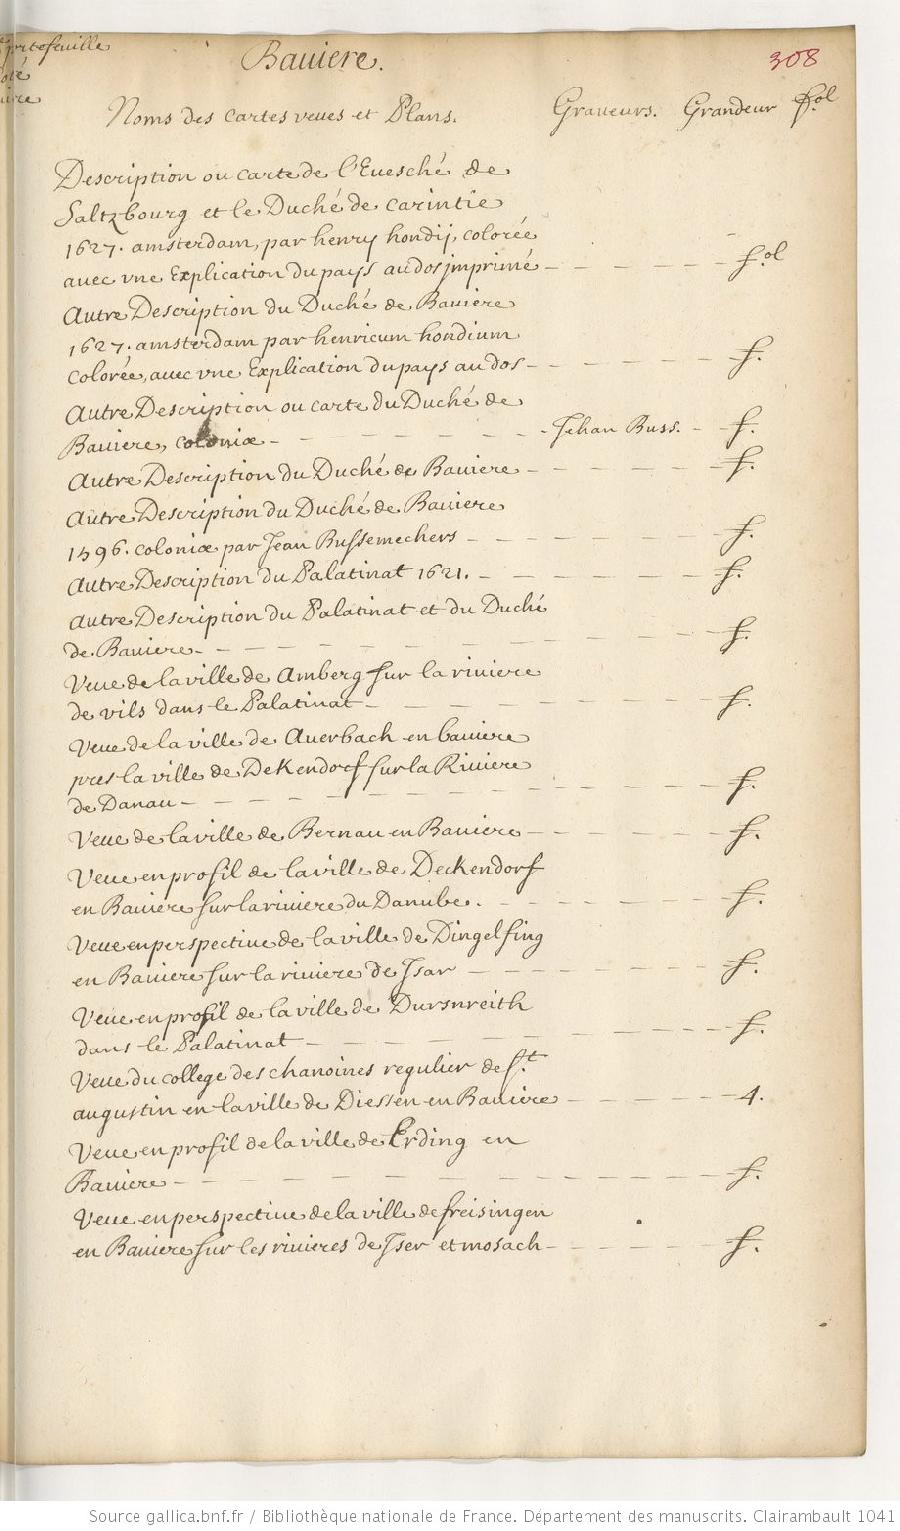 portefeuille
Baviere.
308
Noms des cartes veues et Plans. Graveurs. Grandeur fol
Description ou carte de l'Euesché de
Saltzbourg et le Duché de carintie
1627. amsterdam, par henry hondij, colorée
avec vne Explication du pays au dos jmprimé - fol
Autre Description du Duché de Baviere
1627. amsterdam par henricum hondium
Colorée, avec vne Explication du pays au dos - f.
Autre Description ou carte du Duché de
Baviere, coloniæ - Jehan Buss. - f.
Autre Description du Duché de Baviere - f.
Autre Description du Duché de Baviere
1596. coloniæ par Jean Bussemechers - f.
Autre Description du Palatinat 1621. - f.
Autre Description du Palatinat et du Duché
de Baviere - f.
Veue de la ville de Amberg sur la riviere
de vils dans le Palatinat - f.
Veue de la ville de Auerbach en baviere
pres la ville de Dekendorf sur la Riviere
de Danau - f.
Veue de la ville de Bernau en Baviere - f.
Veue en profil de la ville de Deckendorf
en Baviere sur la riviere du Danube. - f.
Veue en perspective de la ville de Dingelfing
en Baviere sur la riviere de Jsar - f.
Veue en profil de la ville de Dursnreith
dans le Palatinat - f.
Veue du college des chanoines regulier de St.
augustin en la ville de Diessen en Baviere - 4.
Veue en profil de la ville de Erding en
Baviere - f.
Veue en perspective de la ville de freisingen
en Baviere sur les rivieres de Jser et mosach - f.
Source gallica.bnf.fr / Bibliothèque nationale de France. Département des manuscrits. Clairambault 1041